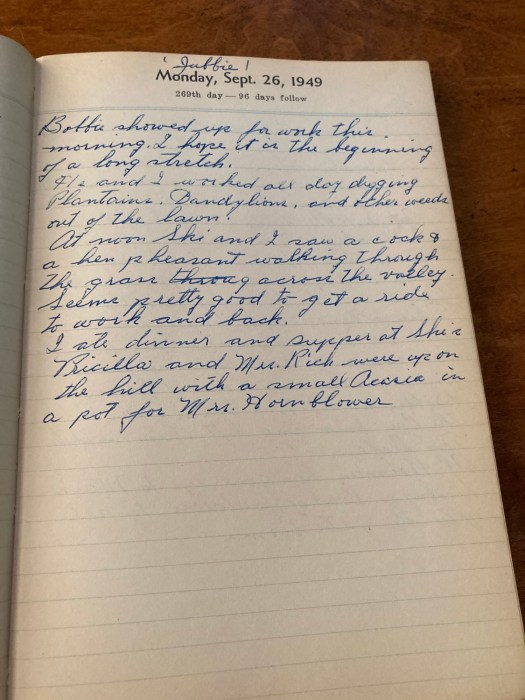 'Jubbie'
Monday, Sept. 26, 1949
269th day — 96 days follow
Bobbie showed up for work this
morning. I hope it is the beginning
of a long stretch.
and I worked all day digging
Plantains, Dandylions, and other weeds
out of the lawn.
At noon Ski and I saw a cock &
a hen pheasant walking through
the grass throug across the valley.
Seems pretty good to get a ride
to work and back.
I ate dinner and supper at Ski's
Pricilla and Mrs. Rich were up on
the hill with a small Acacia in
a pot for Mrs. Hornblower